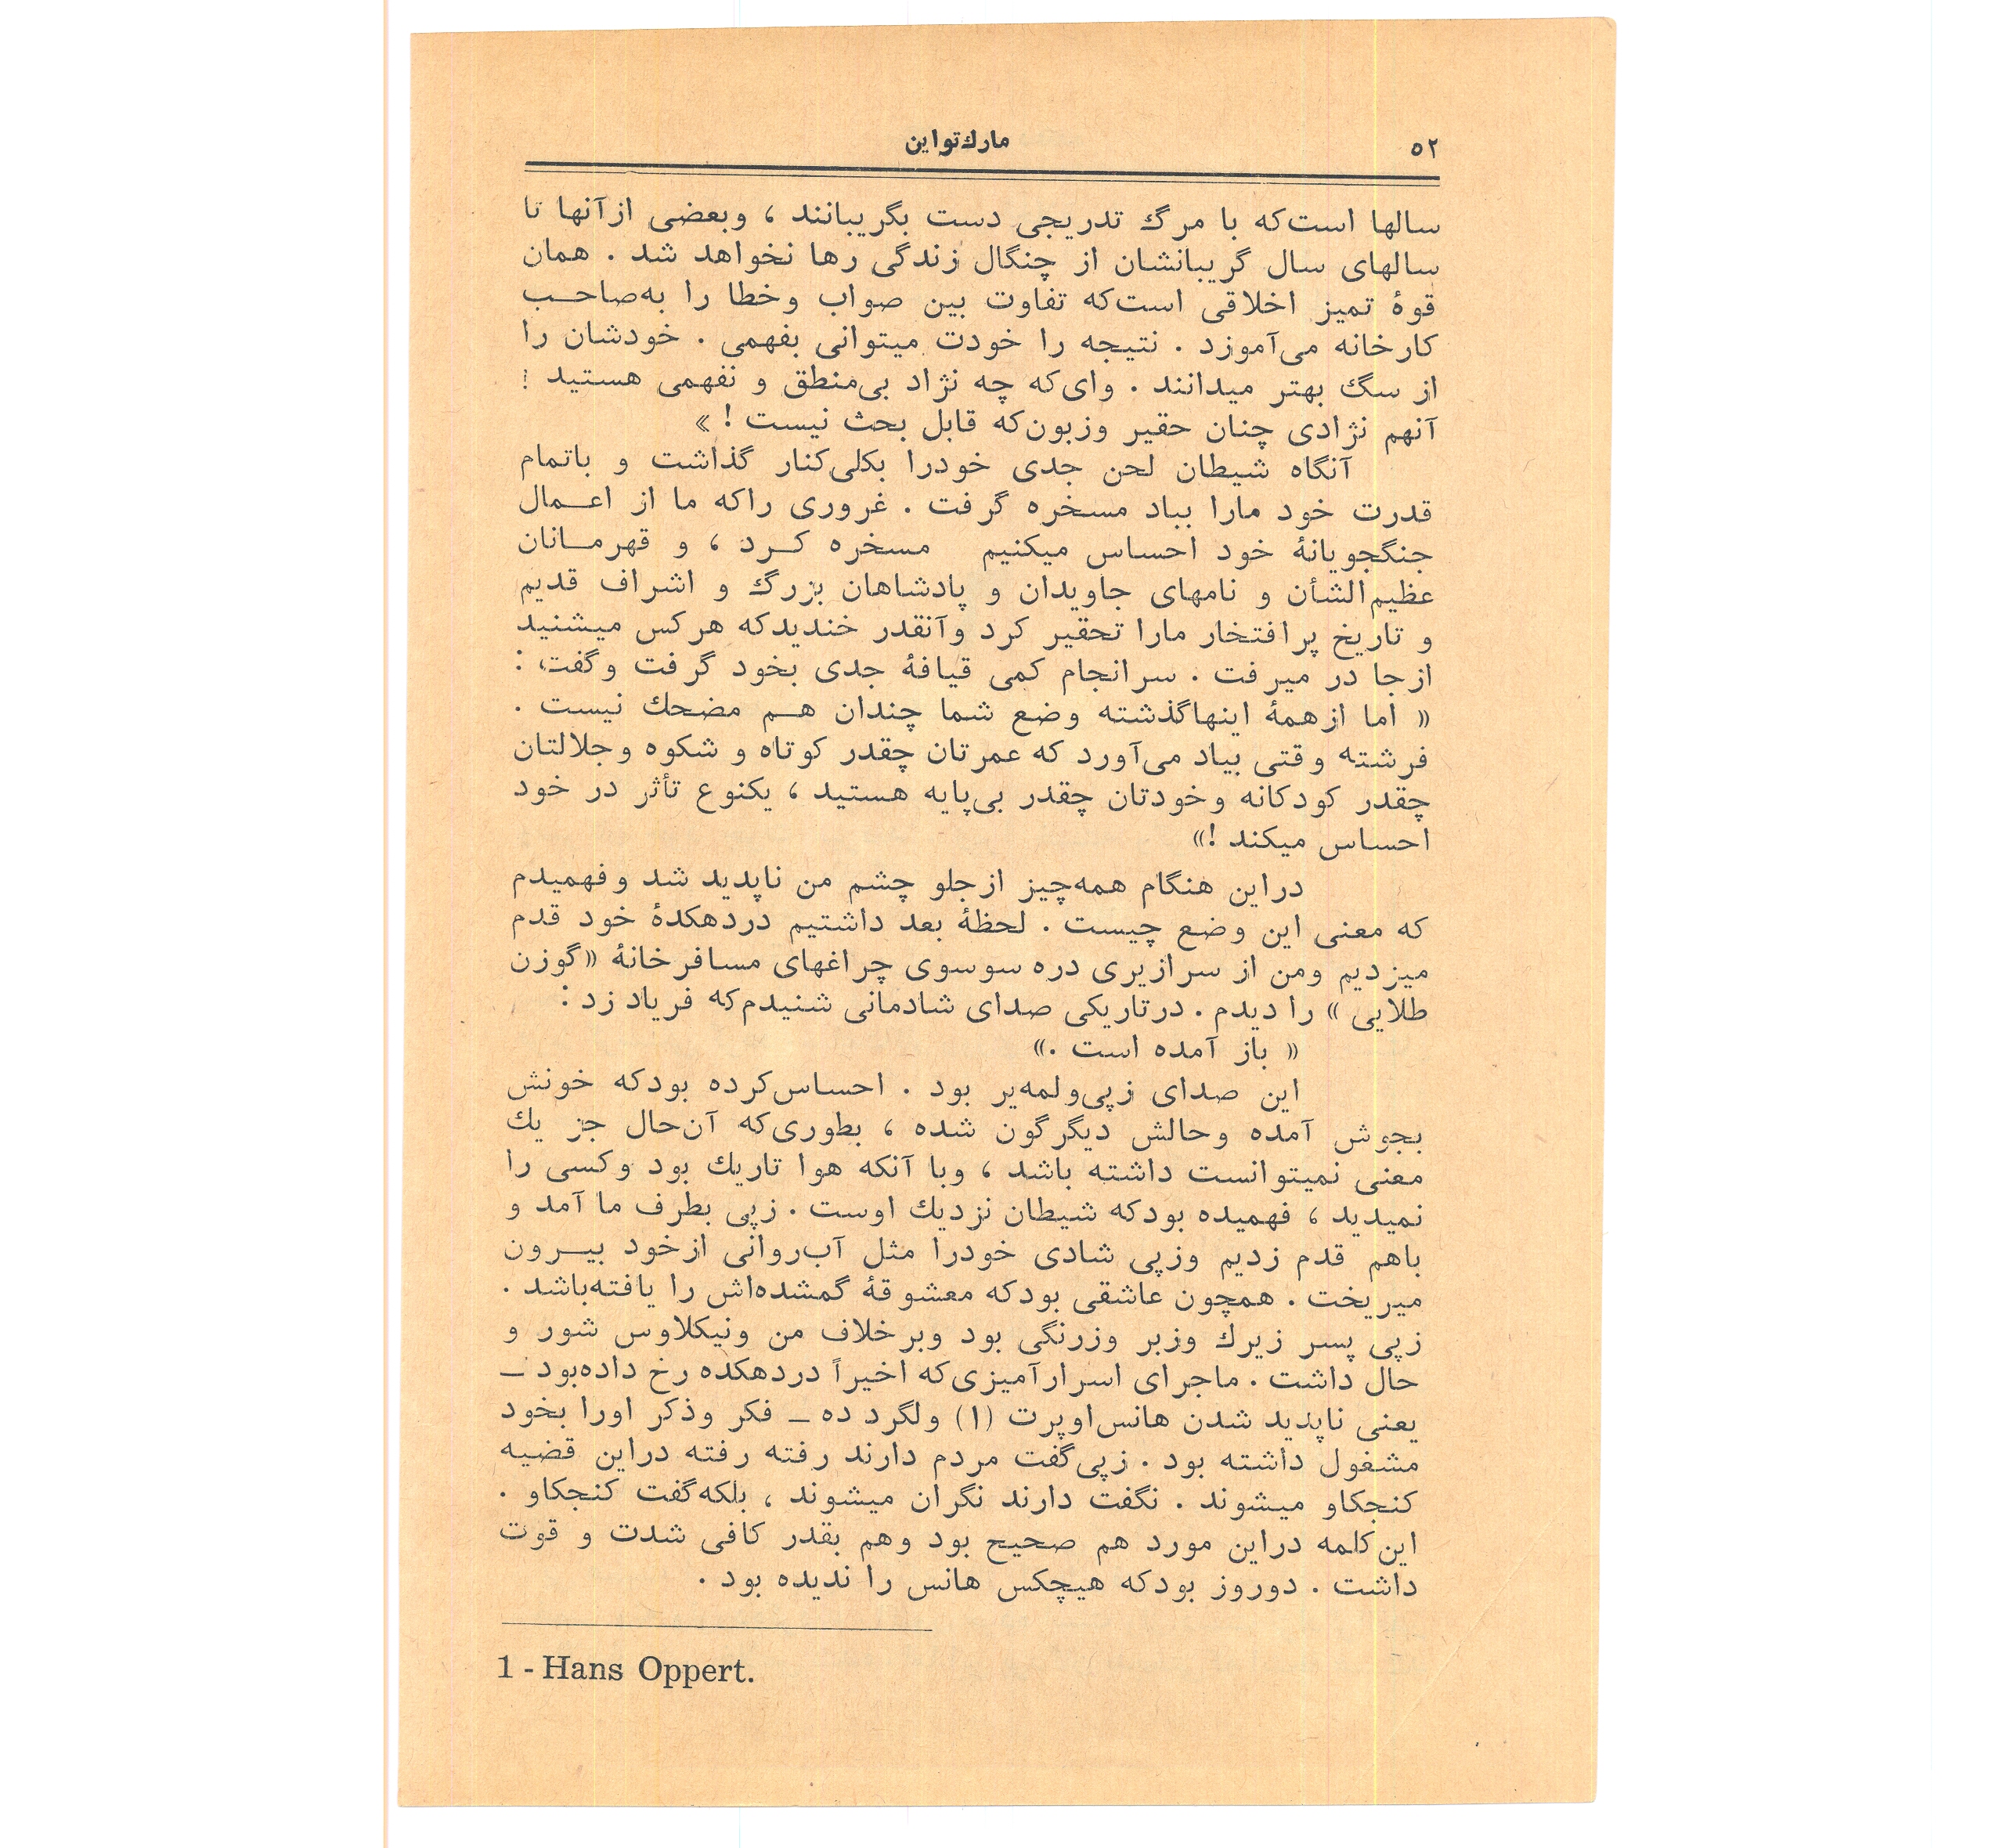 ۵۲
مارك‌تواین
سالها است‌که با مرگ تدریجی دست بگریبانند ، وبعضی ازآنها تا
سالهای سال گریبانشان از چنگال زندگی رها نخواهد شد . همان
قوهٔ تمیز اخلاقی است‌که تفاوت بین صواب وخطا را به‌صاحب
کارخانه می‌آموزد . نتیجه را خودت میتوانی بفهمی . خودشان را
از سگ بهتر میدانند . وای‌که چه نژاد بی‌منطق و نفهمی هستید !
آنهم نژادی چنان حقیر وزبون‌که قابل بحث نیست ! »
آنگاه شیطان لحن جدی خودرا بکلی‌کنار گذاشت و باتمام
قدرت خود مارا بباد مسخره گرفت . غروری راکه ما از اعمال
جنگجویانهٔ خود احساس میکنیم مسخره کرد ، و قهرمانان
عظیم‌الشأن و نامهای جاویدان و پادشاهان بزرگ و اشراف قدیم
و تاریخ پرافتخار مارا تحقیر کرد وآنقدر خندیدکه هرکس میشنید
ازجا در میرفت . سرانجام کمی قیافهٔ جدی بخود گرفت وگفت :
« اما ازهمهٔ اینهاگذشته وضع شما چندان هم مضحك نیست .
فرشته وقتی بیاد می‌آورد که عمرتان چقدر کوتاه و شکوه وجلالتان
چقدر کودکانه وخودتان چقدر بی‌پایه هستید ، یکنوع تأثر در خود
احساس میکند !»
دراین هنگام همه‌چیز ازجلو چشم من ناپدید شد وفهمیدم
که معنی این وضع چیست . لحظهٔ بعد داشتیم دردهکدهٔ خود قدم
میزدیم ومن از سرازیری دره سوسوی چراغهای مسافرخانهٔ «گوزن
طلایی » را دیدم . درتاریکی صدای شادمانی شنیدم‌که فریاد زد :
« باز آمده است .»
این صدای زپی‌ولمه‌یر بود . احساس‌کرده بودکه خونش
بجوش آمده وحالش دیگرگون شده ، بطوری‌که آن‌حال جز یك
معنی نمیتوانست داشته باشد ، وبا آنکه هوا تاریك بود وکسی را
نمیدید ، فهمیده بودکه شیطان نزدیك اوست . زپی بطرف ما آمد و
باهم قدم زدیم وزپی شادی خودرا مثل آب‌روانی ازخود بیرون
میریخت . همچون عاشقی بودکه معشوقهٔ گمشده‌اش را یافته‌باشد .
زپی پسر زیرك وزبر وزرنگی بود وبرخلاف من ونیکلاوس شور و
حال داشت . ماجرای اسرارآمیزی‌که اخیراً دردهکده رخ داده‌بود ـ
یعنی ناپدید شدن هانس‌اوپرت (۱) ولگرد ده ـ فکر وذکر اورا بخود
مشغول داشته بود . زپی‌گفت مردم دارند رفته رفته دراین قضیه
کنجکاو میشوند . نگفت دارند نگران میشوند ، بلکه‌گفت کنجکاو .
این‌کلمه دراین مورد هم صحیح بود وهم بقدر کافی شدت و قوت
داشت . دوروز بودکه هیچکس هانس را ندیده بود .
1 - Hans Oppert.